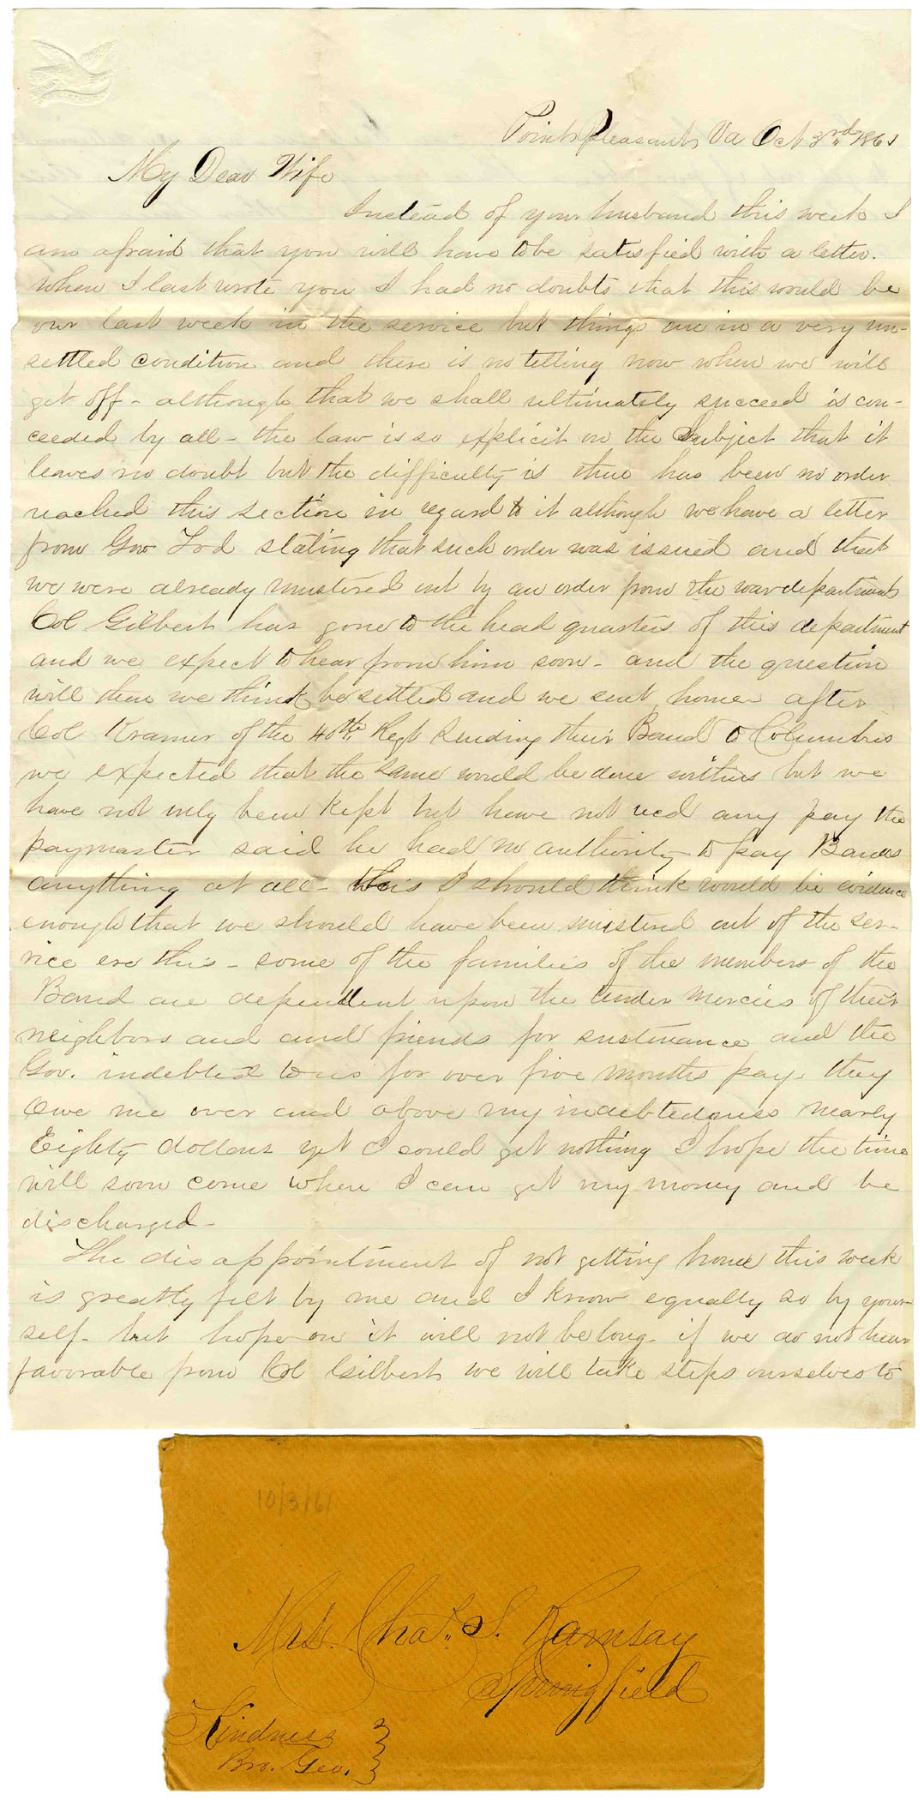 Point Pleasant, Va Oct 3rd 1861
My Dear Wife
Instead of your husband this week I
am afraid that you will have to be satisfied with a letter.
When I last wrote you I had no doubts that this would be
our last week in the service but things are in a very un-
settled condition and there is no telling now when we will
get off - although that we shall ultimately succeed is con-
ceeded by all - the law is so explicit on the subject that it
leaves no doubt but the difficulty is there has been no order
reached this section in regard to it although we have a letter
from Gov Tod stating that such order was issued and that
we were already mustered out by an order from the war department
Col. Gilbert has gone to the head quarters of this department
and we expect to hear from him soon - and the question
will then we think be settled and we sent home after
Col Kramer of the 40th Regt sending their Band to Columbus
we expected that the same would be done with us but we
have not only been kept but have not recd any pay the
paymaster said he had no authority to pay Bands
anything at all - this I should think would be evidence
enough that we should have been mustered out of the ser-
vice ere this - some of the families of the members of the
Band are dependent upon the tender mercies of their
neighbors and and friends for sustinance and the
Gov. indebted to us for over five months pay - they
Owe me over and above my indebtedness nearly
Eighty dollars yet I could get nothing I hope the time
will soon come when I can get my money and be
discharged -
The disappointment of not getting home this week
is greatly felt by me and I know equally so by your-
self - but hope on it will not be long - if we do not hear
favorable from Col Gilbert we will take steps ourselves to
10/3/61
Mrs. Chas. S. Ramsay
Springfield
Kindness }
Bro. Geo. }